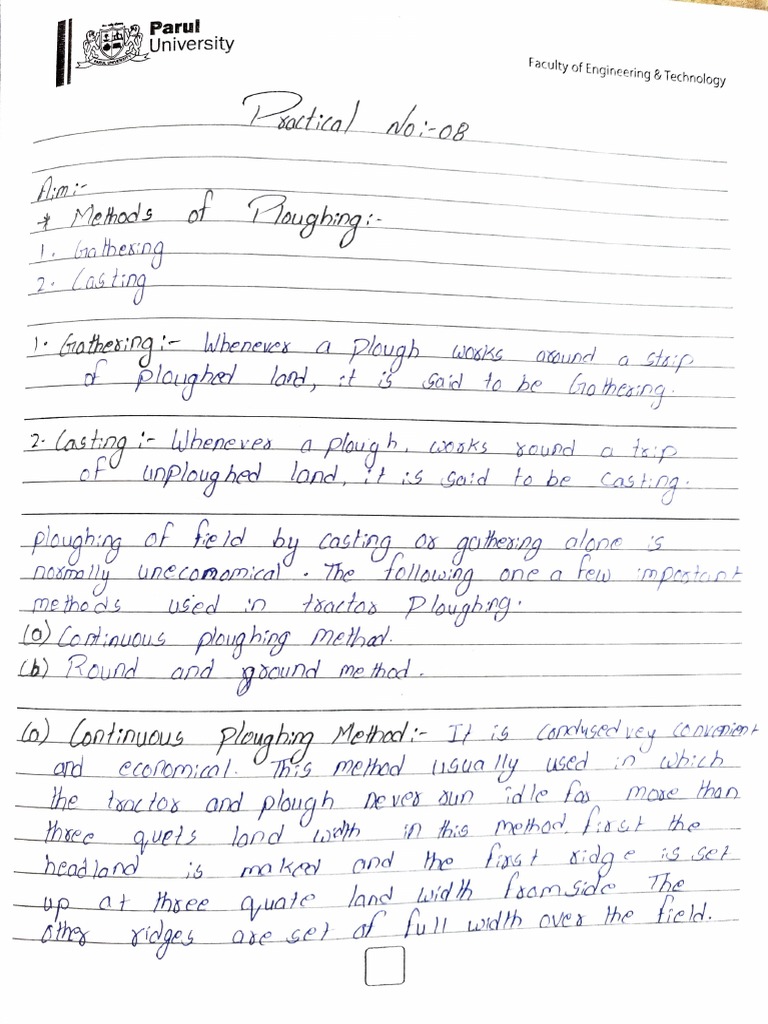 Parul
University
PARUL UNIVERSITY
Faculty of Engineering & Technology
Practical No:-08
Aim:-
* Methods of Ploughing:-
1. Gathering
2. Casting
1. Gathering:- Whenever a plough works around a strip
of ploughed land, it is said to be Gathering.
2. Casting:- Whenever a plough, works round a trip
of unploughed land, it is said to be casting.
ploughing of field by casting or gathering alone is
normally uneconomical. The following one a few important
methods used in tractor Ploughing.
(a) Continuous ploughing method.
(b) Round and ground method.
(a) Continuous Ploughing Method:- It is condused vey convenient
and economical. This method usually used in which
the tractor and plough never run idle for more than
three quets land width in this method. first the
headland is maked and the first ridge is set
up at three quate land width from side The
other ridges are set of full width over the field.